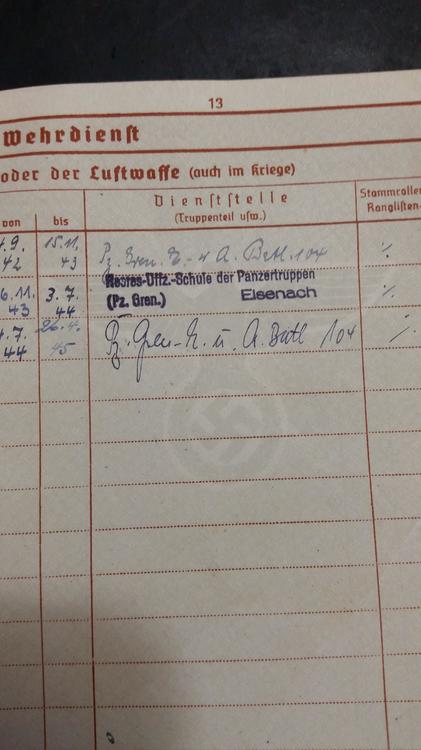 13
Wehrdienst
oder der Luftwaffe (auch im Kriege)
von
bis
Dienststelle
(Truppenteil usw.)
Stammrollen
Ranglisten-
15.11.
42
43
Pz. Gren. E.- u A. Batl. 104
Heeres-Offz.-Schule der Panzertruppen
(Pz. Gren.) Eisenach
6.11.
43
3.7.
44
4.7.
44
26.4.
45
Pz. Gren.-E. u. A. Batl 104